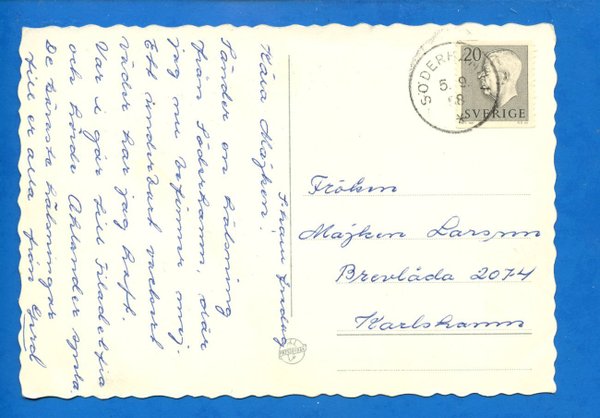 Kära Májken!
Sänder en hälsning
från Söderhamn, där
jag nu befinner mig.
Ett underbart vackert
väder har jag haft.
Var i går till Filadelfia
och hörde Åhlander spela.
De käraste hälsningar
till er alla från Gurd
SÖDERHAMN 1
5. 9.
58
20
SVERIGE
Fröken
Májken Larsson
Brevlåda 2074
Karlshamn